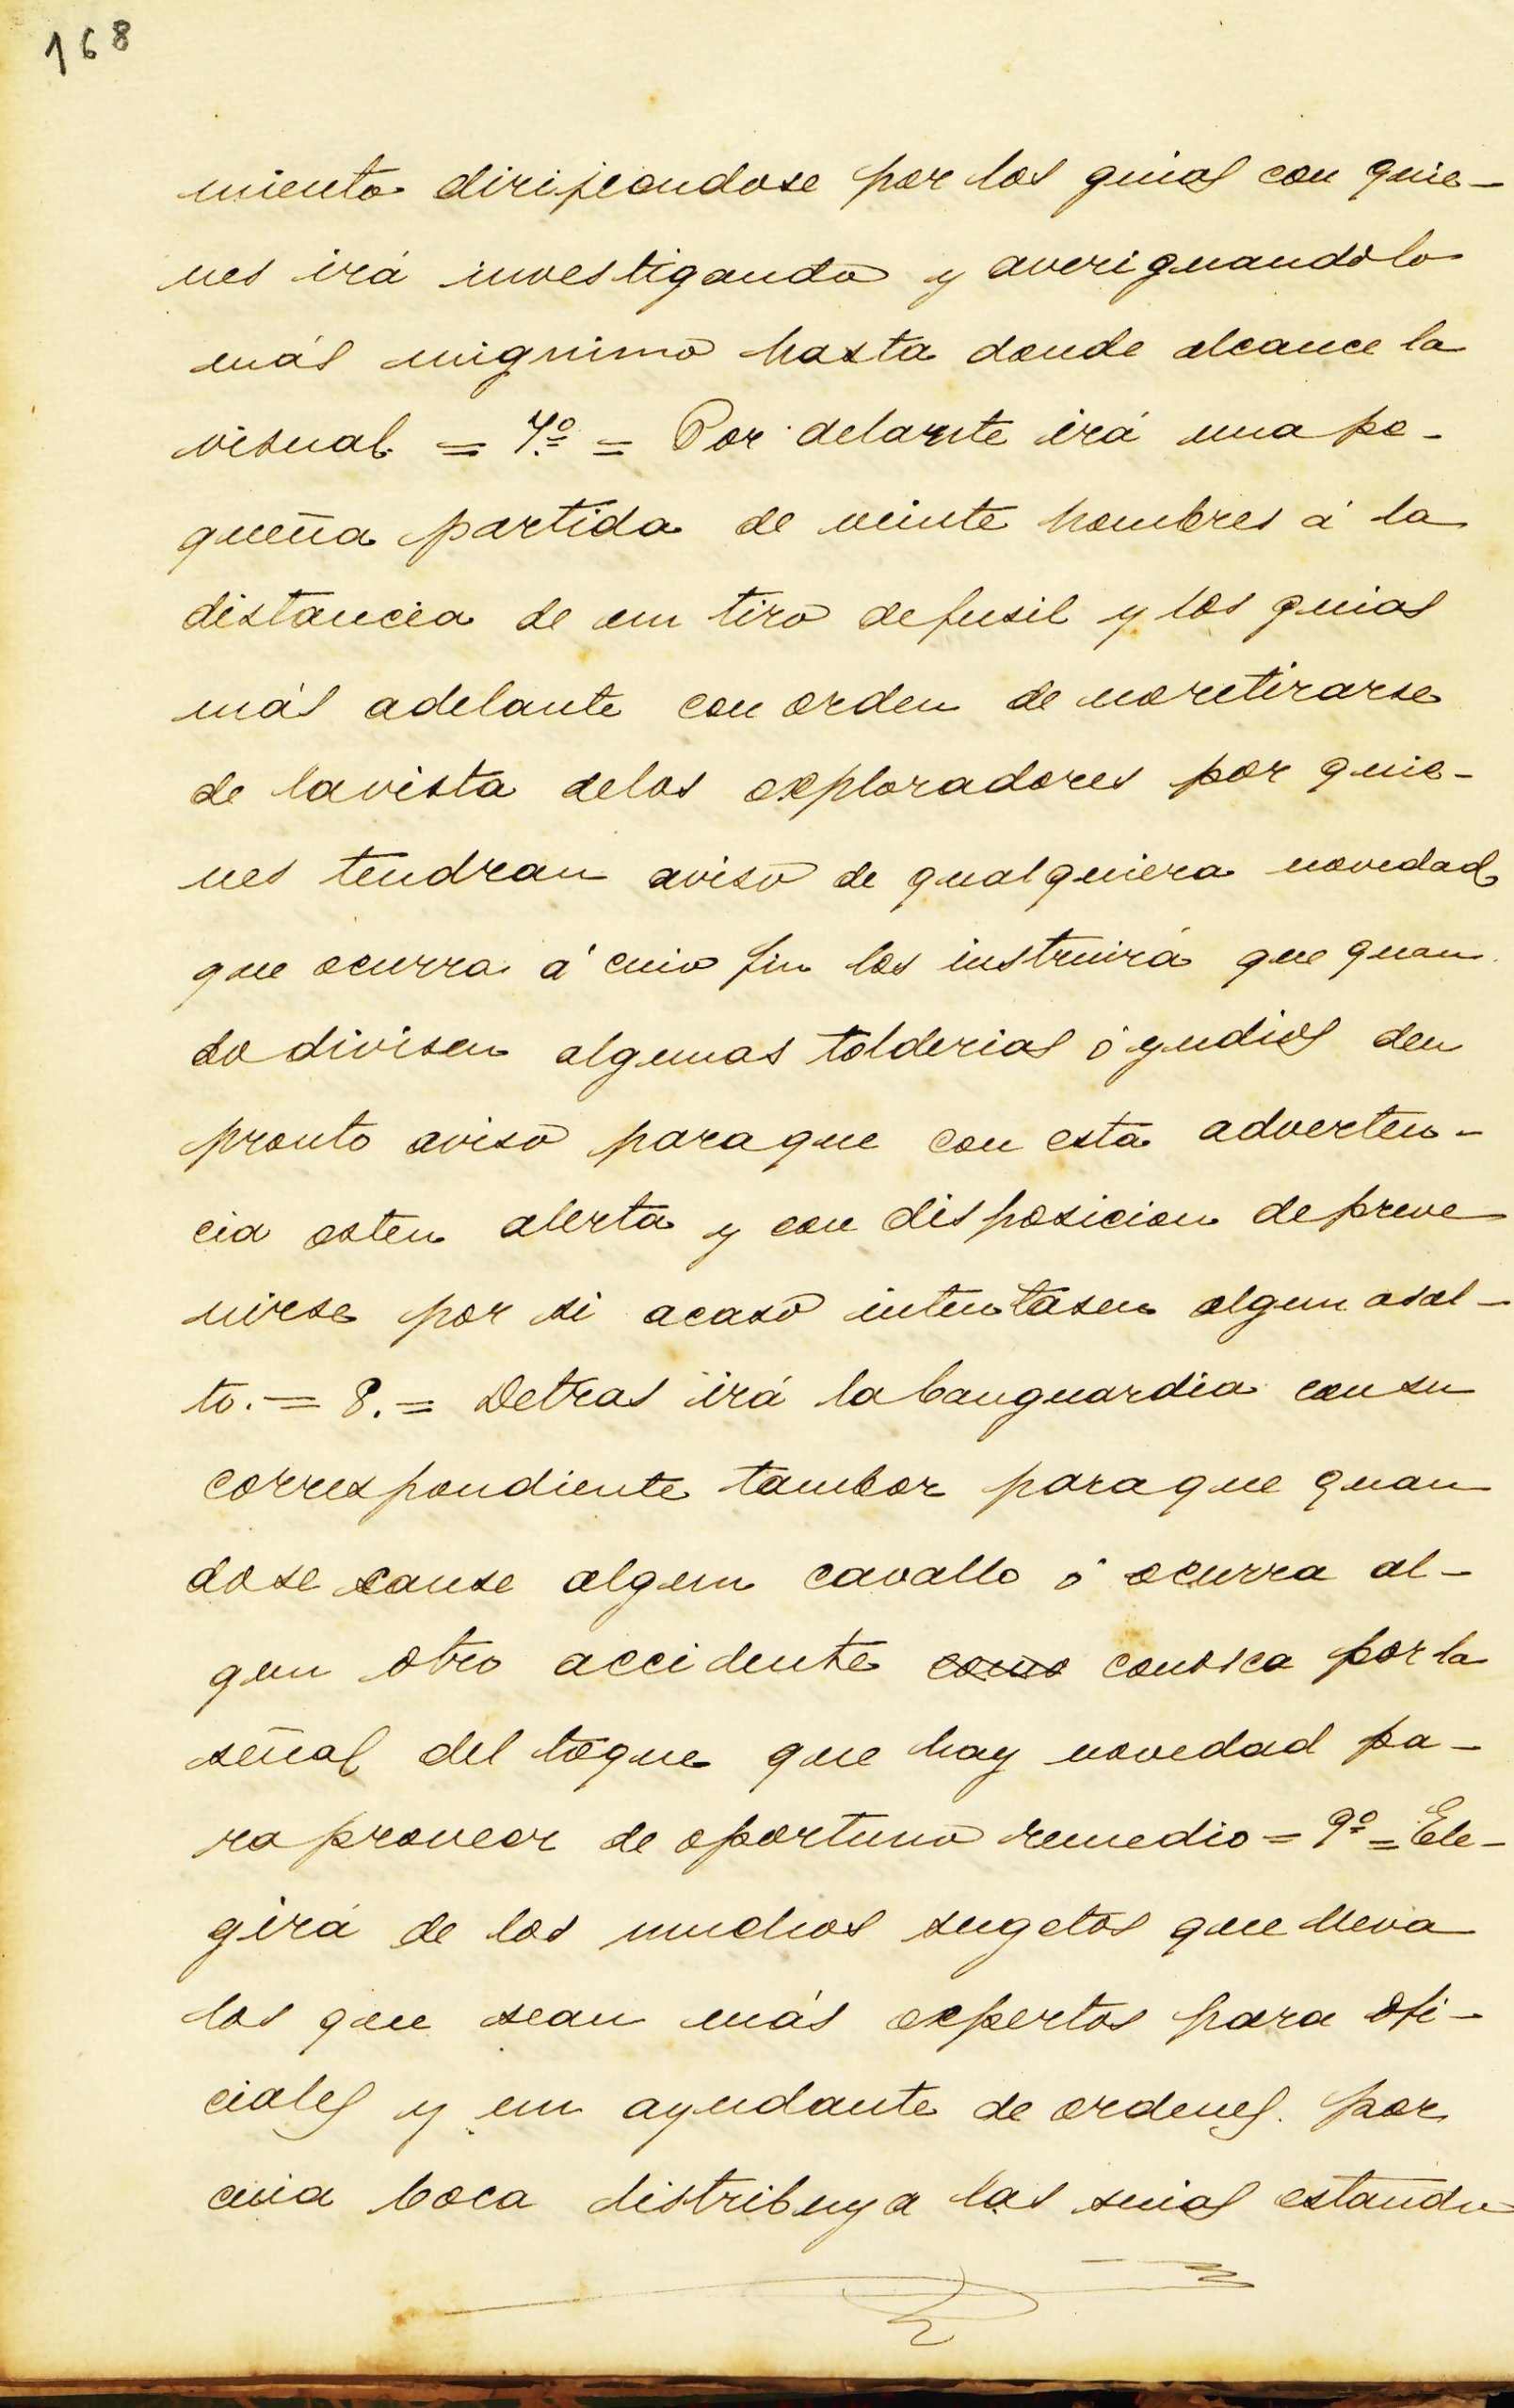 168
miento dirijeandose por los guias con quie-
nes irá investigando y averiguandolo
más mignimo hasta donde alcance la
visual. = 7º = Por delante irá una pe-
queña partida de veinte hombres á la
distancia de un tiro defusil y los guias
más adelante con orden de noretirarse
de lavista delos exploradores por quie-
nes tendran aviso de qualquiera novedad
que ocurra á cuio fin los instruirá que quan
do divisen algunas tolderias ó yndios den
pronto aviso paraque con esta adverten-
cia esten alerta y con disposicion depreve
nirse por si acaso intentasen algun asal-
to. = 8. = Detras irá labanguardia consu
correspondiente tambor paraque quan
dose canse algun cavallo ó ocurra al-
gun otro accidente como conosca porla
señal del toque que hay novedad pa-
ra proveer de oportuno remedio = 9º = Ele-
girá de los muchos sugetos quelleva
los que sean más expertos para ofi-
ciales y un ayudante de ordenes. por
cuia boca distribuya las suias estando